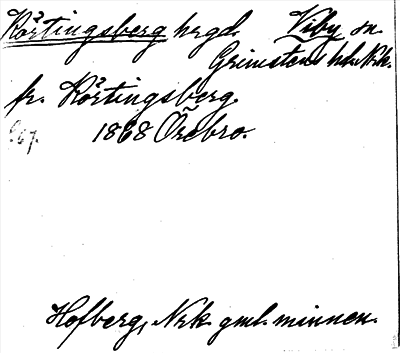 Körtingsberg hrgd. Viby sn.
Grimstens hd. Nrk.
fr. Körtingsberg.
1868 Örebro.
Hofberg, Nrk. gml. minnen.